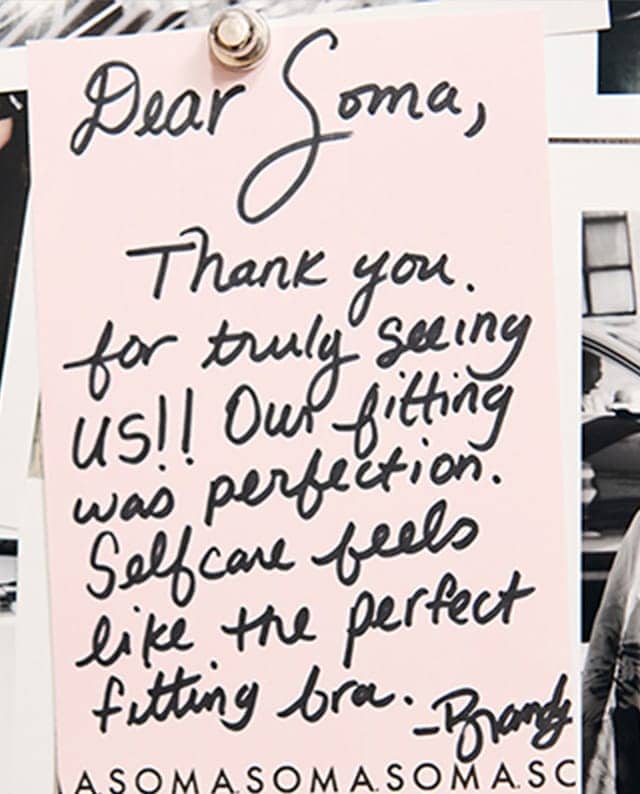 Dear Soma,
Thank you.
for truly seeing
us!! Our fitting
was perfection.
Selfcare feels
like the perfect
fitting bra. -Brandy
A.SOMA.SOMA.SOMA.SC